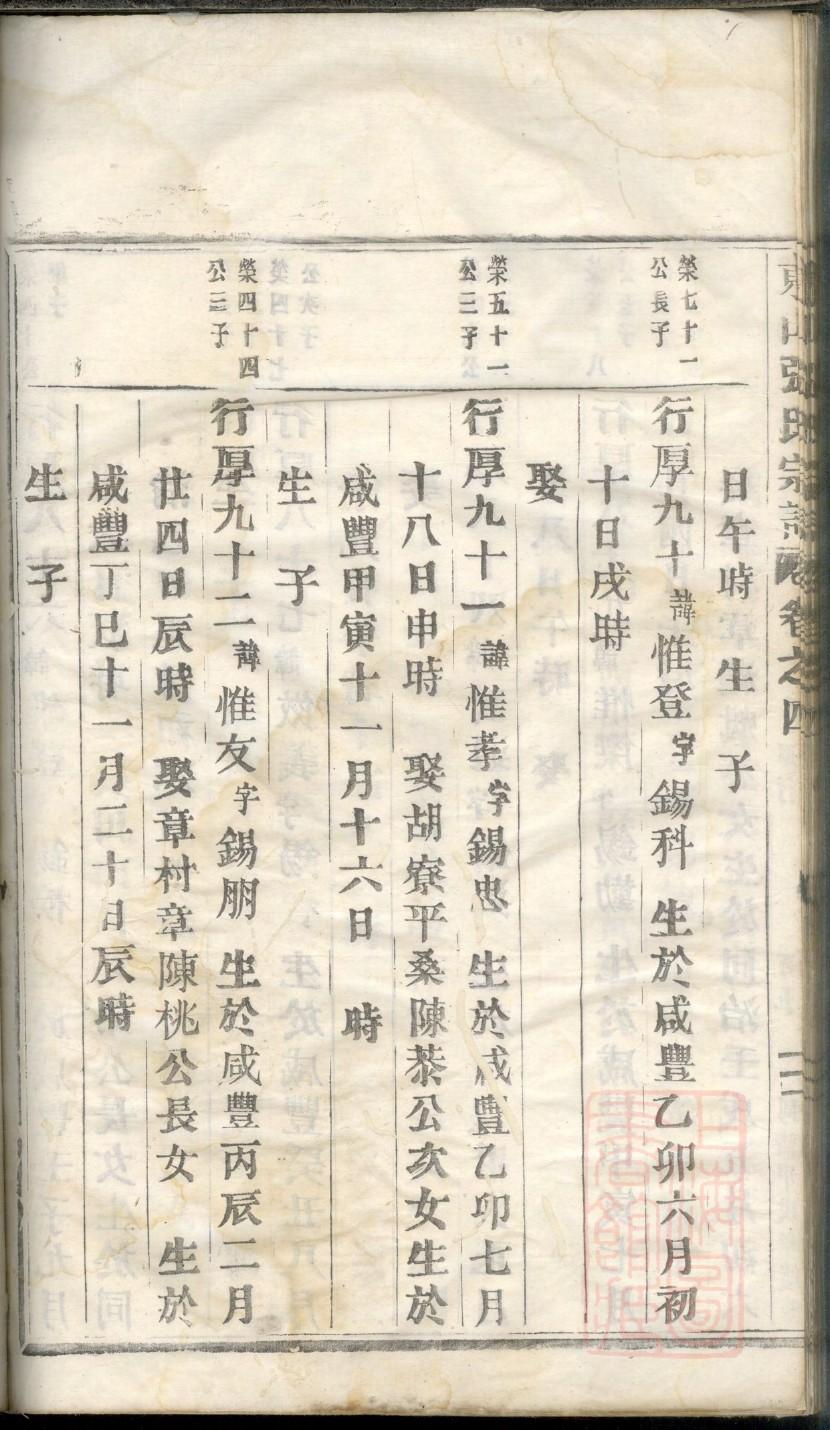 東山張氏宗譜 卷之四
日午時 生 子
榮七十一
公長子
行厚九十 諱 惟登 字 錫科 生於咸豐乙卯六月初
十日戌時
娶
榮五十一
公三子
行厚九十一 諱 惟孝 字 錫忠 生於咸豐乙卯七月
十八日申時 娶胡寮平桑陳恭公次女生於
咸豐甲寅十一月十六日 時
生 子
榮四十四
公三子
行厚九十二 諱 惟友 字 錫朋 生於咸豐丙辰二月
廿四日辰時 娶章村章陳桃公長女 生於
咸豐丁巳十一月二十日辰時
生 子